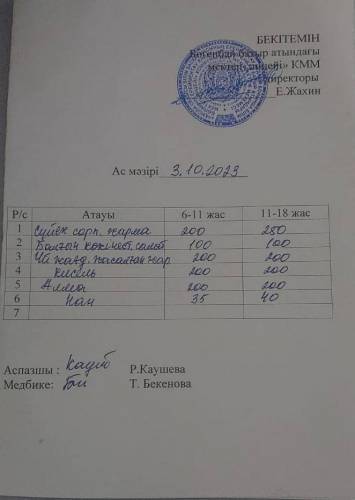 БЕКІТЕМІН
Бөгенбай батыр атындағы
мектеп-лицейі» КММ
директоры
Е.Жахин
Ас мәзірі 3.10.2023
Р/с Атауы 6-11 жас 11-18 жас
1 Сүйек сорп. жарма 200 250
2 Балғын көкөніст. салат 100 100
3 Үй жағд. жасалған нар 200 200
4 Кисель 200 200
5 Алма 200 200
6 Нан 35 40
7
Аспазшы : Р.Каушева
Медбике: Т. Бекенова